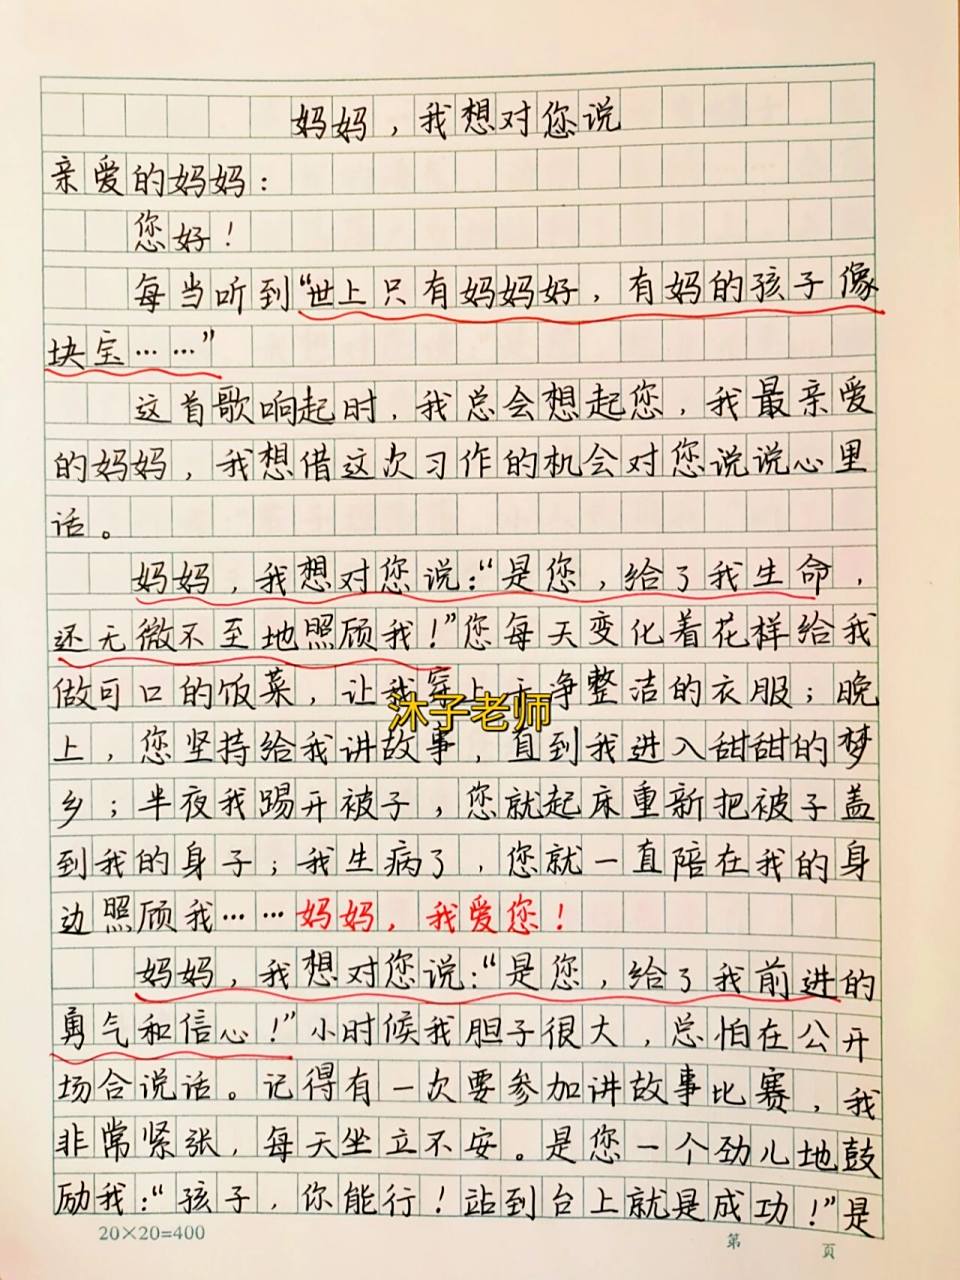 妈妈，我想对您说
亲爱的妈妈：
您好！
每当听到“世上只有妈妈好，有妈的孩子像
块宝……”
这首歌响起时，我总会想起您，我最亲爱
的妈妈，我想借这次习作的机会对您说说心里
话。
妈妈，我想对您说：“是您，给了我生命，
还无微不至地照顾我！”您每天变化着花样给我
做可口的饭菜，让我穿上干净整洁的衣服；晚
沐子老师
上，您坚持给我讲故事，直到我进入甜甜的梦
乡；半夜我踢开被子，您就起床重新把被子盖
到我的身子；我生病了，您就一直陪在我的身
边照顾我……妈妈，我爱您！
妈妈，我想对您说：“是您，给了我前进的
勇气和信心！”小时候我胆子很大，总怕在公开
场合说话。记得有一次要参加讲故事比赛，我
非常紧张，每天坐立不安。是您一个劲儿地鼓
励我：“孩子，你能行！站到台上就是成功！”是
20×20=400
第 页